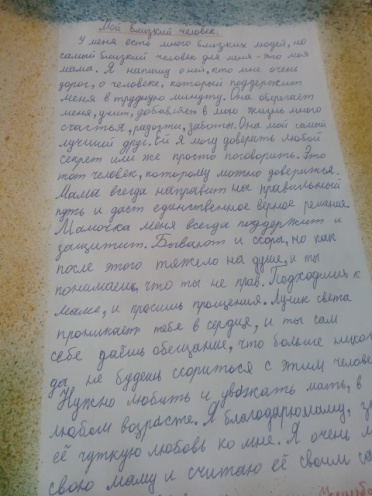 Мой близкий человек.
У меня есть много близких людей, но
самый близкий человек для меня - это моя
мама. Я напишу о ней, кто мне очень
дорог, о человеке, который поддержит
меня в трудную минуту. Она оберегает
меня, учит, добавляет в мою жизнь много
счастья, радости, заботы. Она мой самый
лучший друг. Ей я могу доверить любой
секрет или же просто поговорить. Это
тот человек, которому можно довериться.
Мама всегда направит на правильный
путь и даст единственное верное решение.
Мамочка меня всегда поддержит и
защитит. Бывают и ссора, но как
после этого тяжело на душе, и ты
понимаешь, что ты не прав. Подходишь к
маме, и просишь прощения. Лучик света
проникает тебе в сердце, и ты сам
себе даёшь обещание, что больше никог
ды не будешь ссориться с этим челове
Нужно любить и уважать мать, в
любом возрасте. Я благодарю маму, з
её чуткую любовь ко мне. Я очень л
свою маму и считаю её своим са